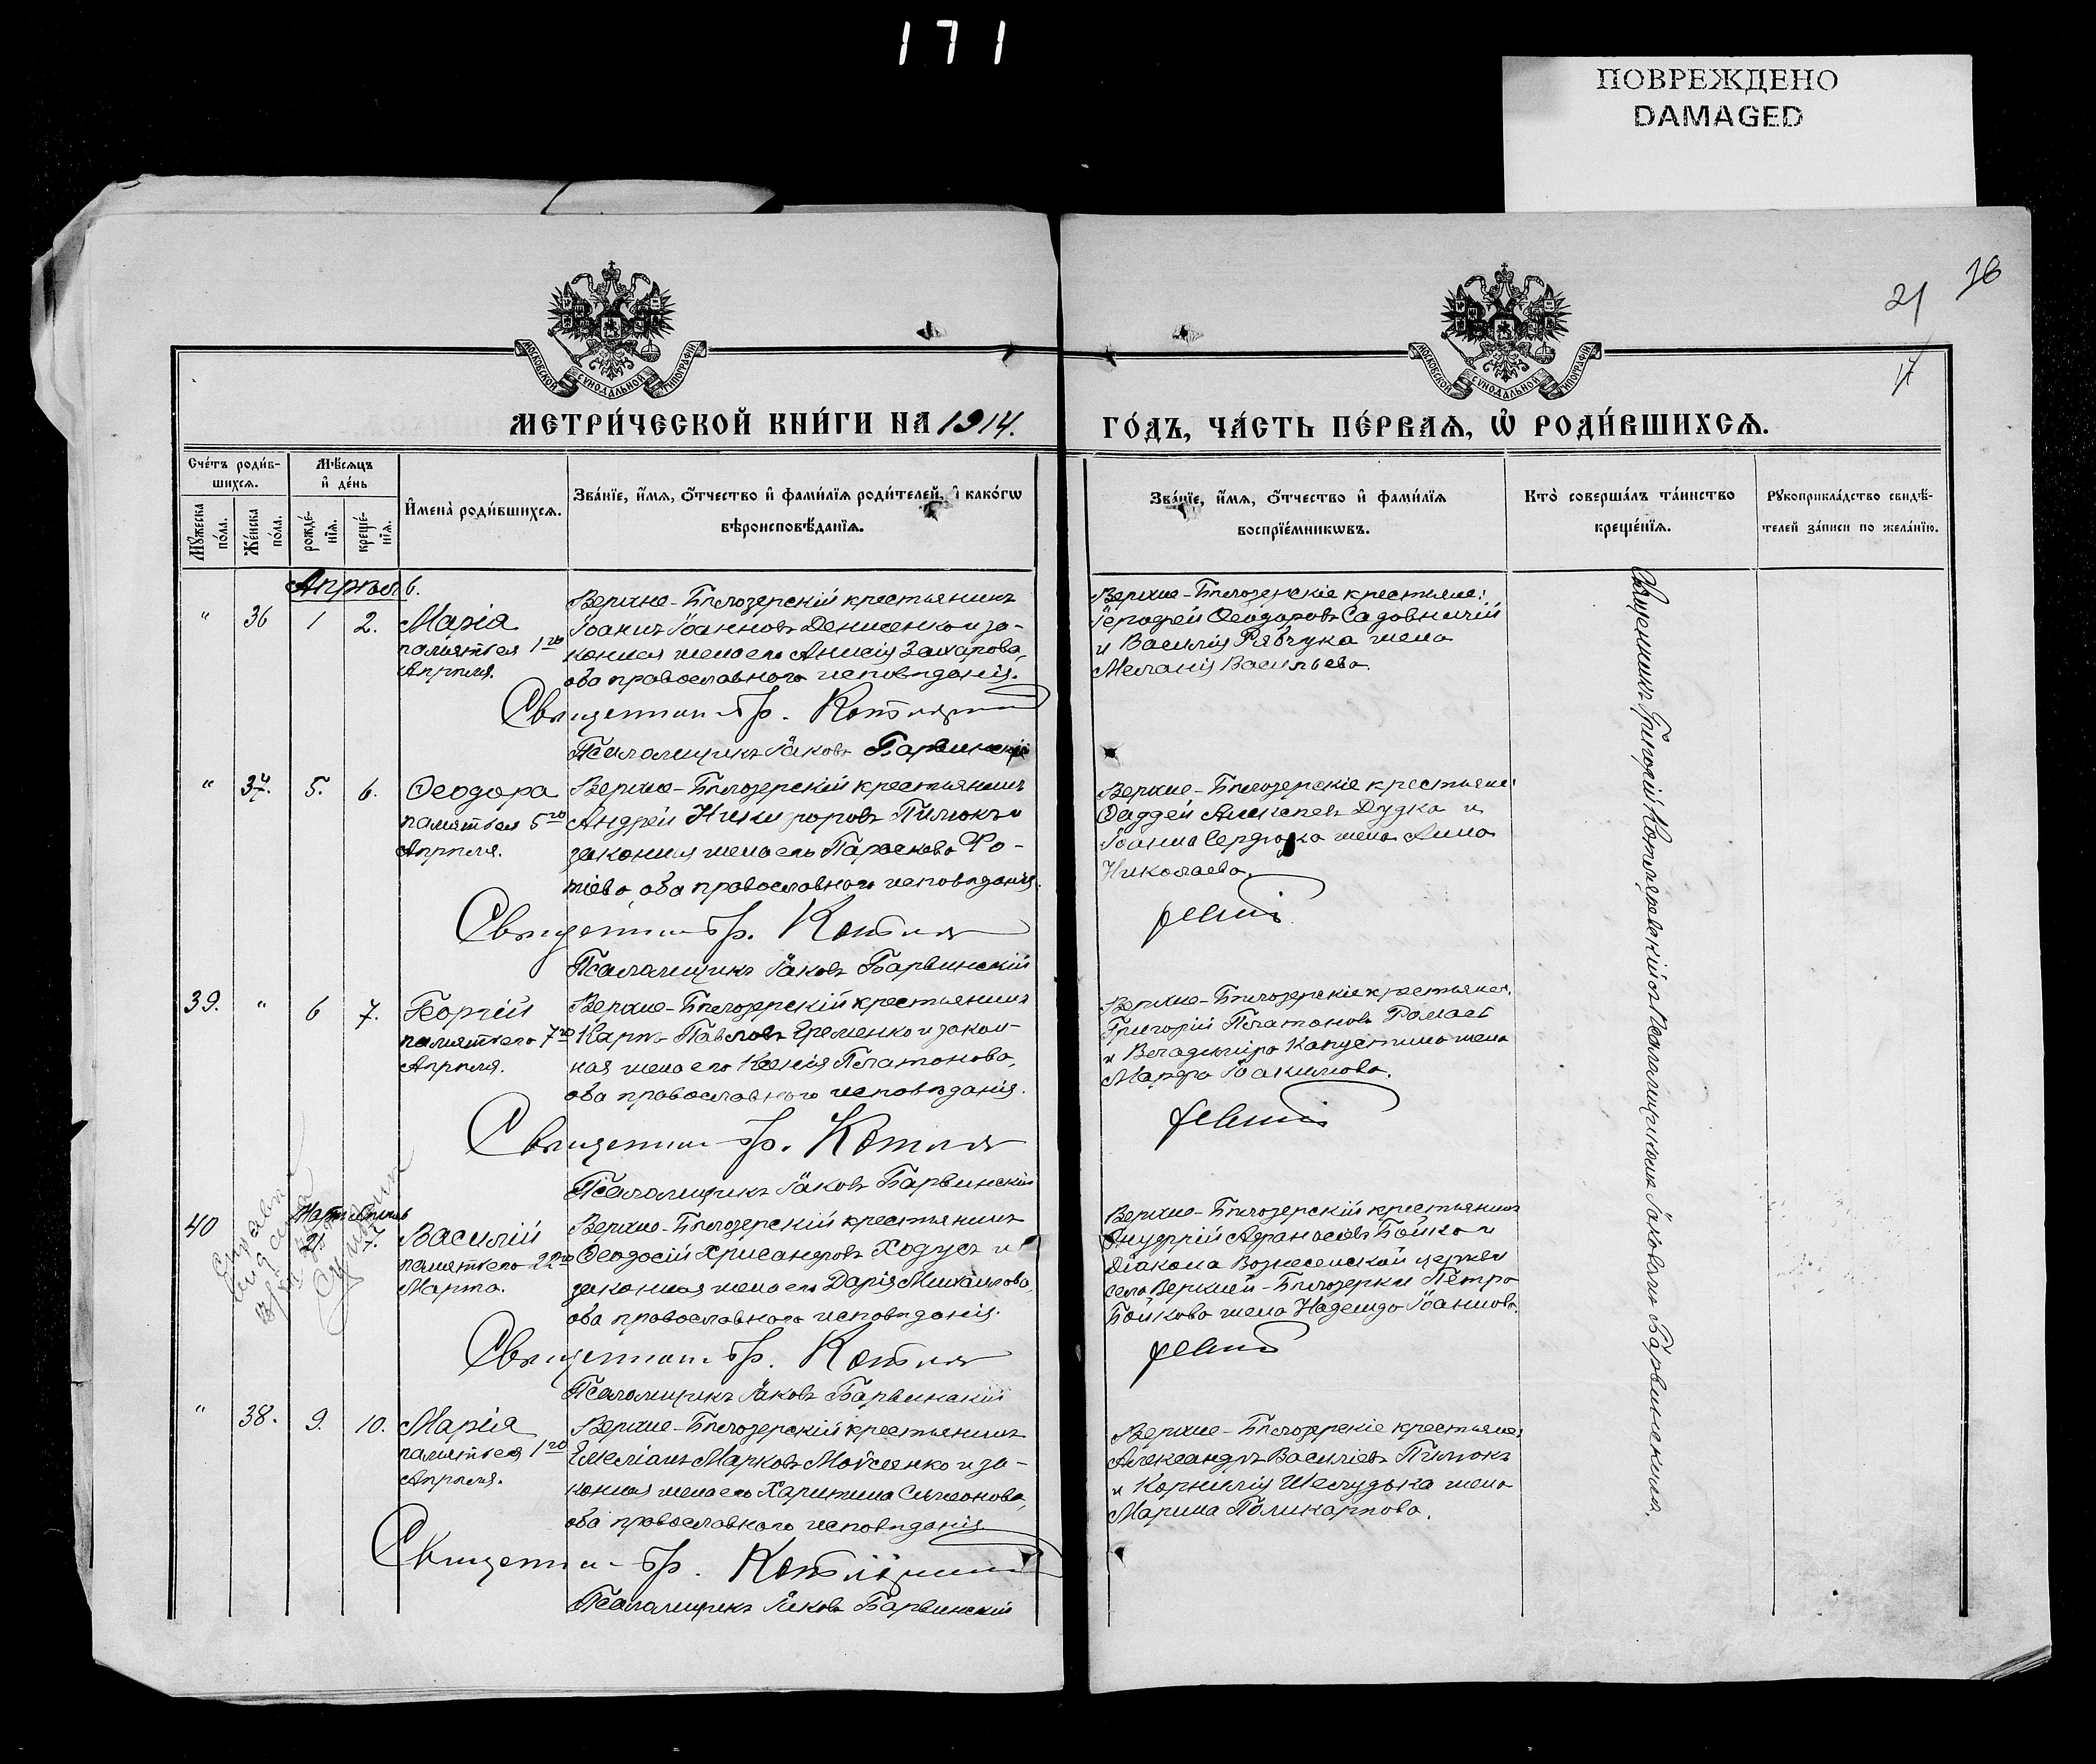 171
ПОВРЕЖДЕНО
DAMAGED
16
21
17
МОСКОВСКОЙ СѴНОДАЛЬНОЙ ТИПОГРАФІИ
МОСКОВСКОЙ СѴНОДАЛЬНОЙ ТИПОГРАФІИ
МЕТРИ́ЧЕСКОЙ КНИ́ГИ НА 1914.
ГО́ДЪ, ЧА́СТЬ ПЕ́РВАѦ, Ѡ҆ РОДИ́ВШИХСѦ.
Сче́тъ роди́в-
шихсѧ.
Мѣ́сѧцъ
и҆ де́нь
Мꙋ́жеска по́ла.
Же́нска по́ла.
рожде́-
нїѧ.
креще́-
нїѧ.
И҆мена̀ роди́вшихсѧ.
Зва́нїе, и҆́мѧ, ѻ҆́тчество и҆ фами́лїѧ роди́телей, и҆ како́гѡ
вѣроисповѣ́данїѧ.
Зва́нїе, и҆́мѧ, ѻ҆́тчество и҆ фами́лїѧ
воспрїе́мникѡвъ.
Кто̀ соверша́лъ та́инство
креще́нїѧ.
Рꙋкоприкла́дство свидѣ́-
телей за́писи по жела́нїю.
Апрѣль.
" 36 1 2. Марія
памятъея 1го
Апрѣля.
Верхне-Бѣлозерскій крестьянинъ
Іоаннъ Іоанновъ Денисенко и за-
конная жена его Анисія Захарова,
оба православнаго исповѣданія.
Священникъ Гр. Котляр
Псаломщикъ Іаковъ Барвинскій
Верхне-Бѣлозерскіе крестьяне:
Іерофей Ѳеодоровъ Садовничій
и Василія Рябчука жена
Меланія Васильева.
" 37. 5. 6. Ѳеодора
памятъея 5го
Апрѣля.
Верхне-Бѣлозерскій крестьянинъ
Андрей Никифоровъ Пилюкъ и
законная жена его Параскева Фо-
тіева, оба православнаго исповѣданія.
Священникъ Гр. Котля
Псаломщикъ Іаковъ Барвинскій
Верхне-Бѣлозерскіе крестьяне:
Ѳаддей Алексѣевъ Дудка и
Іоанна Сердюка жена Анна
Николаева.
39. " 6 7. Георгій
памятъего 7го
Апрѣля.
Верхне-Бѣлозерскій крестьянинъ
Карпъ Павловъ Еременко и закон-
ная жена его Ксенія Платонова,
оба православнаго исповѣданія.
Священник Гр. Котля
Псаломщикъ Іаковъ Барвинскій
Верхне-Бѣлозерскіе крестьяне:
Григорій Платоновъ
и Владиміра Капустина жена
Марфа Іоакимова.
40 Мартъ Апрѣль
21 7. Василій
памятъего 22го
Марта.
Верхне-Бѣлозерскій крестьянинъ
Ѳеодосій Хрисанфовъ Ходусъ и
законная жена его Дарія Михаилова,
оба православнаго исповѣданія.
Священник Гр. Котля
Псаломщикъ Іаковъ Барвинскій
Верхне-Бѣлозерскій крестьянинъ
Онуфрій Афанасіевъ Бойко и
Діакона Вознесенской церкви
села Верхней-Бѣлозерки Петра
Бойкова жена Надежда Іоаннова.
" 38. 9. 10. Марія
памятъея 1го
Апрѣля.
Верхне-Бѣлозерскій крестьянинъ
Емеліанъ Марковъ Мойсеенко и за-
конная жена его Харитина Симеонова,
оба православнаго исповѣданія
Священник Гр. Котляр
Псаломщикъ Іаковъ Барвинскій
Верхне-Бѣлозерскіе крестьяне:
Александръ Василіевъ Пилюкъ
и Корнилія Шелудька жена
Марина Поликарпова.
Священникъ Григорій Котляревскій съ Псаломщикомъ Іаковомъ Барвинскимъ.